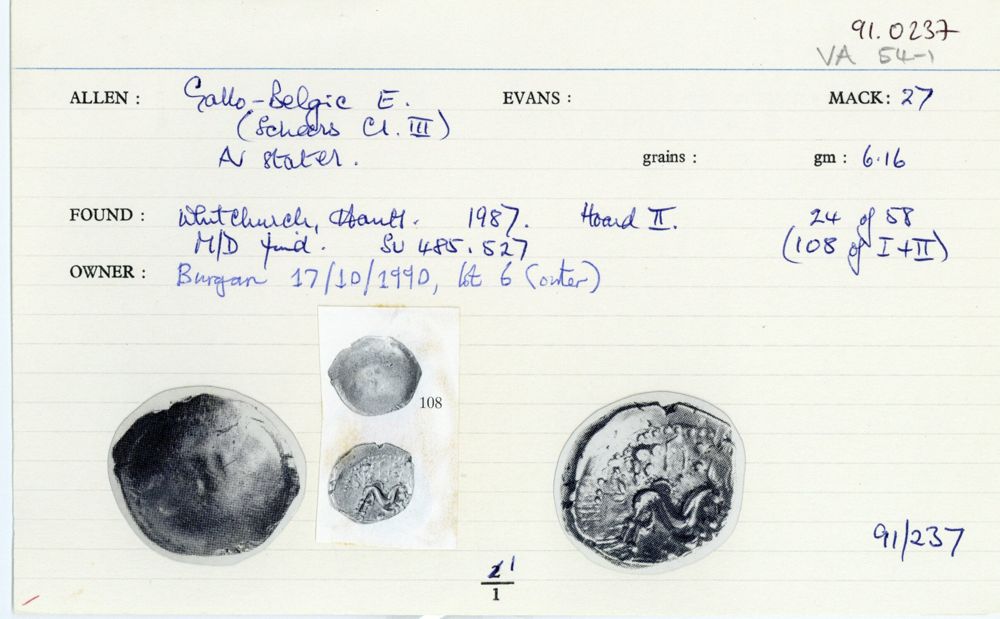 91.0237
VA 54-1
ALLEN : Gallo-Belgic E. EVANS : MACK: 27
(Scheers Cl. III)
AV stater. grains : gm : 6.16
FOUND : Whitchurch, Hants. 1987. Hoard II. 24 of 58
M/D find. SU 485.527 (108 of I+II)
OWNER : Burgan 17/10/1990, lot 6 (outer)
108
91/237
1
1